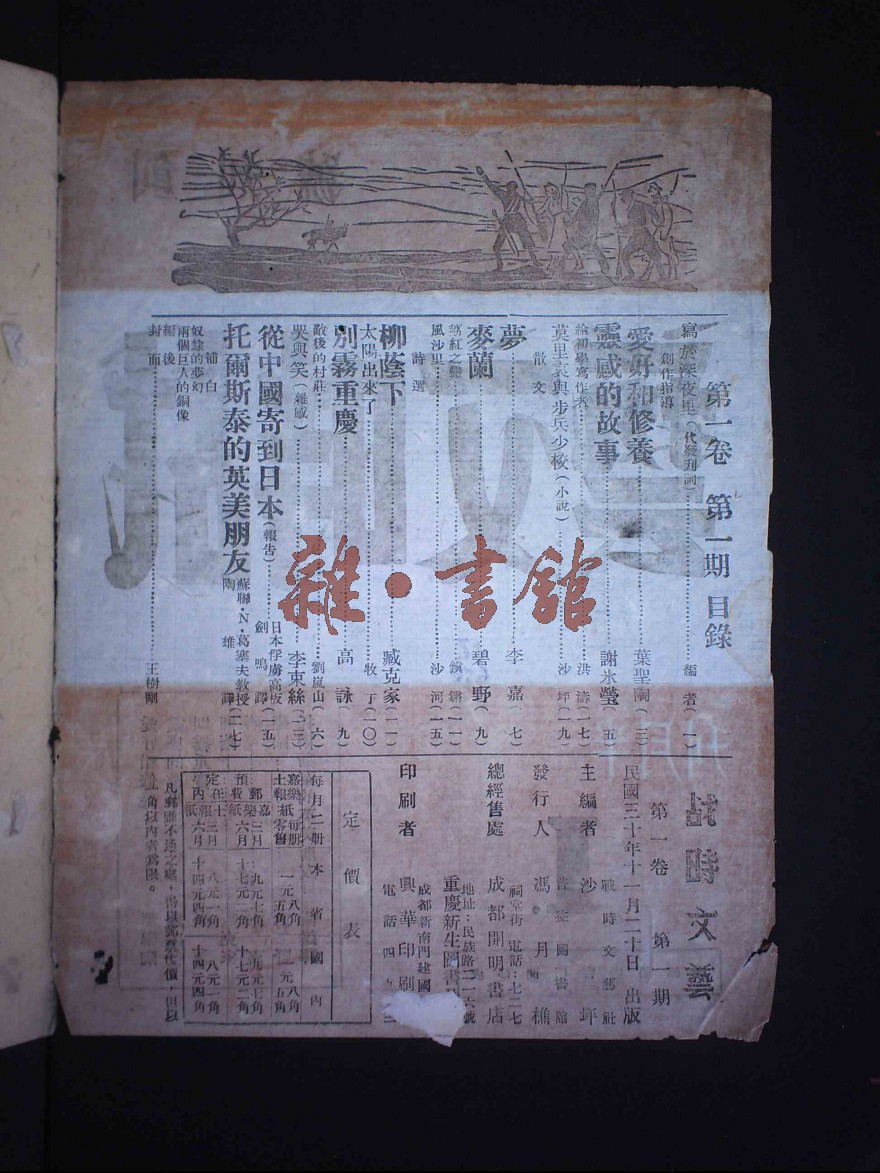 第一卷 第一期 目錄
寫於深夜里(代發刊詞)編者(一)
創作指導
愛好和修養 葉聖陶(三)
靈感的故事 謝冰瑩(五)
給初學寫作者 洪濤(一七)
莫里哀與步兵少校(小說)沙坪(一九)
散文
夢 李嘉(七)
麥蘭 碧野(九)
風沙里 沙河(一五)
詩選
柳蔭下 臧克家(一一)
太陽出來了 牧丁(一〇)
別霧重慶 高詠(九)
敵後的村莊 劉嵐山(六)
哭與笑(雜感)李束絲(三三)
從中國寄到日本(報告)
日本俘虜高坂
劍鳴譯(二五)
托爾斯泰的英美朋友
蘇聯·N·葛塞夫教授
陶雄譯(二七)
補白
奴隸的夢幻
兩個巨人的銅像
編後
封面 王樹剛
雜·書館
戰時文藝
第一卷 第一期
民國三十年十一月二十日 出版
戰時文藝社
主編者 沙坪
發行人 馮月樵
祠堂街 電話:七二七
總經售處 成都開明書店
地址:民族路二一六號
重慶新生圖書
成都新南門建國
印刷者 興華印刷
電話四九
定價表
每月二册 本省 國內
嘉樂紙每册 一元八角
土報紙零售 一元五角
預定
郵費在內
嘉樂紙
三月 九元七角
六月 十七元二角
土報紙
三月 八元一角
六月 十四元四角
凡郵匯不通之處,得以郵票代價,但以
角以內者爲限。